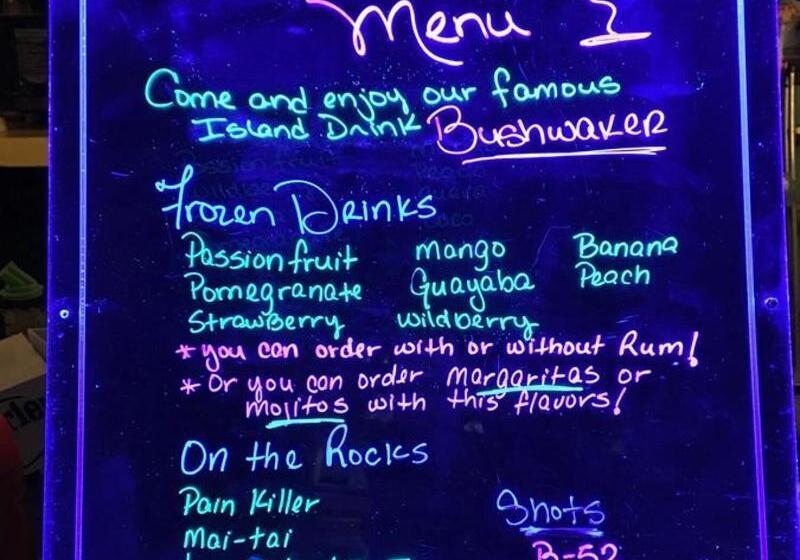 Menu
Come and enjoy our famous
Island Drink Bushwaker
Frozen Drinks
Passion fruit mango Banana
Pomegranate Guayaba Peach
Strawberry wildberry
* you can order with or without Rum!
* Or you can order margaritas or
mojitos with this flavors!
On the Rocks
Pain Killer
Shots
Mai-tai
B-52